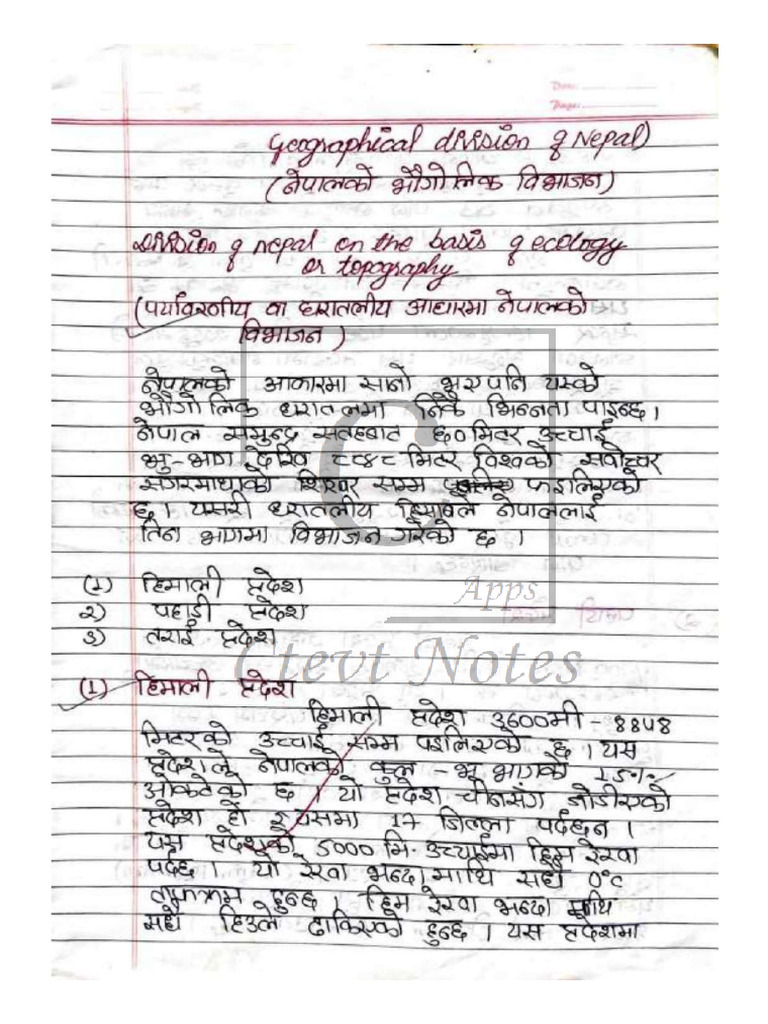 Date:
Page:
Geographical division of Nepal)
(नेपालको भौगोलिक विभाजन)
Division of nepal on the basis of ecology
or topography
(पर्यावरणीय वा धरातलीय आधारमा नेपालको
विभाजन)
नेपालको आकारमा सानो भए पनि यस्को
भौगोलिक धरातलमा निकै भिन्नता पाइन्छ।
नेपाल समुन्द्र सतहबाट ६० मिटर उच्चाई
भु-भाग देखि ८८४८ मिटर विश्वको सर्वोच्चर
सगरमाथाको शिखर सम्म फइलिएको
छ। यसरी धरातलीय हिसाबले नेपाललाई
तिन भागमा विभाजन गरेको छ।
(1) हिमाली प्रदेश
2) पहाडी प्रदेश
3) तराई प्रदेश
Apps
Ctevt Notes
(1) हिमाली प्रदेश
हिमाली प्रदेश 3600मी - 8848
मिटरको उच्चाई सम्म फइलिएको छ। यस
प्रदेशले नेपालको कुल - भू भागको 15%
ओकटेको छ। यो प्रदेश चीनसंग जोडीएको
प्रदेश हो र यसमा 17 जिल्ला पर्दछन।
यस प्रदेशको 5000 मि. उच्चाईमा हिम रेखा
पर्दछ। यो रेखा भन्दा माथि सधै 0°c
तापक्रम हुन्छ। हिम रेखा भन्दा माथि
सधै हिउले ढाकिएको हुन्छ। यस प्रदेशमा